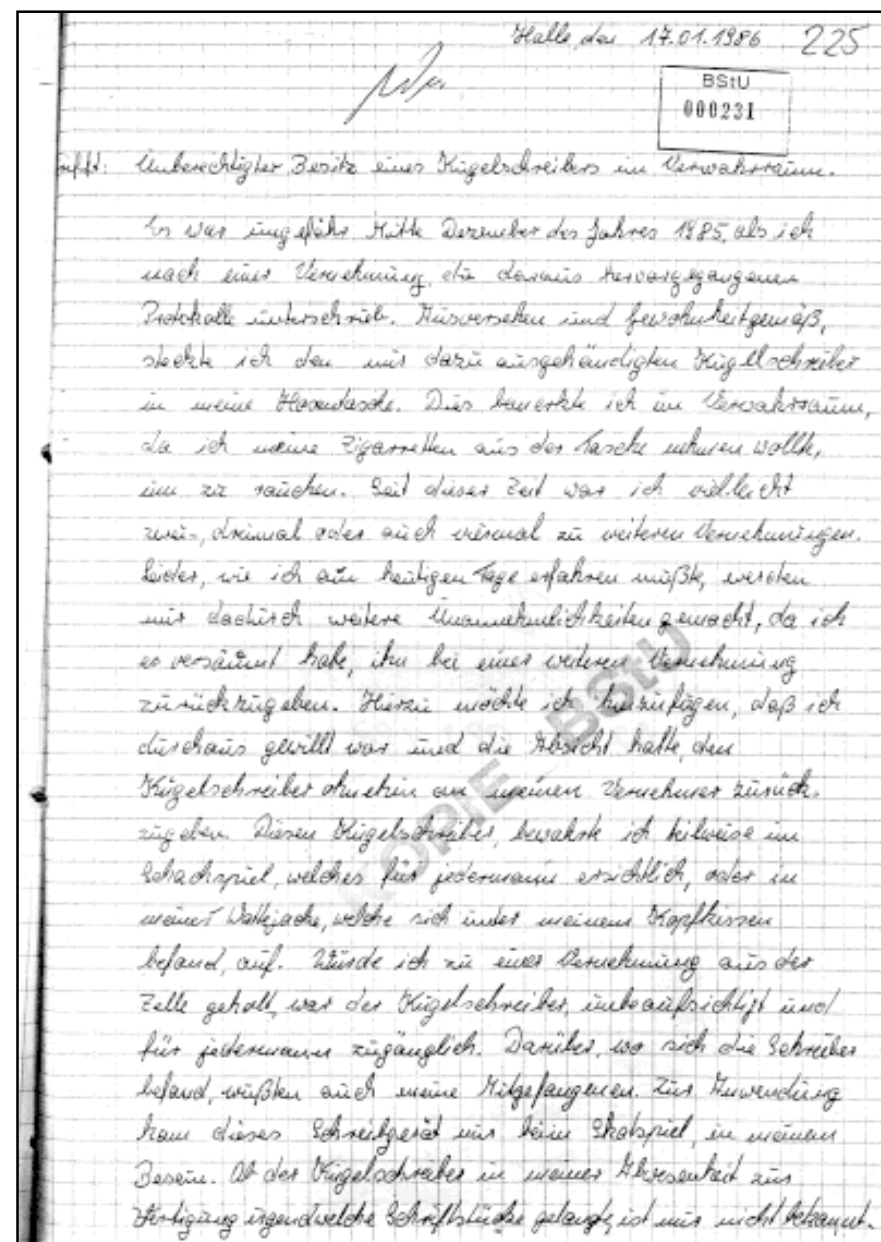 Halle, den 17.01.1986 225
BStU
000231
trifft: Unberechtigter Besitz eines Kugelschreibers im Verwahrraum.
Es war ungefähr Mitte Dezember des Jahres 1985, als ich
nach einer Vernehmung, die daraus hervorgegangenen
Protokolle unterschrieb. Ausversehen und gewohnheitgemäß,
steckte ich den mir dazu ausgehändigten Kugellschreiber
in meine Hosentasche. Dies bemerkte ich im Verwahrraum,
da ich meine Zigarretten aus der Tasche nehmen wollte,
um zu rauchen. Seit dieser Zeit war ich vielleicht
zwei-, dreimal oder auch viermal zu weiteren Vernehmungen.
Leider, wie ich am heutigen Tage erfahren mußte, werden
mir dadurch weitere Unannehmlichkeiten gemacht, da ich
es versäumt habe, ihn bei einer weiteren Vernehmung
zurückzugeben. Hierzu möchte ich hinzufügen, daß ich
durchaus gewillt war und die Absicht hatte, den
Kugelschreiber ohnehin an meinen Vernehmer zurück-
zugeben. Diesen Kugelschreiber, bewahrte ich teilweise im
Schachspiel, welches für jedermann ersichtlich, oder in
meiner Wattejacke, welche sich unter meinem Kopfkissen
befand, auf. Wurde ich zu einer Vernehmung aus der
Zelle geholt, war der Kugelschreiber, unbeaufsichtigt und
für jedermann zugänglich. Darüber, wo sich die Schreiber
befand, wußten auch meine Mitgefangenen. Zur Anwendung
kam dieses Schreibgerät nur beim Skatspiel, in meinem
Besein. Ob der Kugelschreiber in meiner Abwesenheit zur
Fertigung irgendwelche Schriftstücke gelangte, ist mir nicht bekannt.
KOPIE BStU